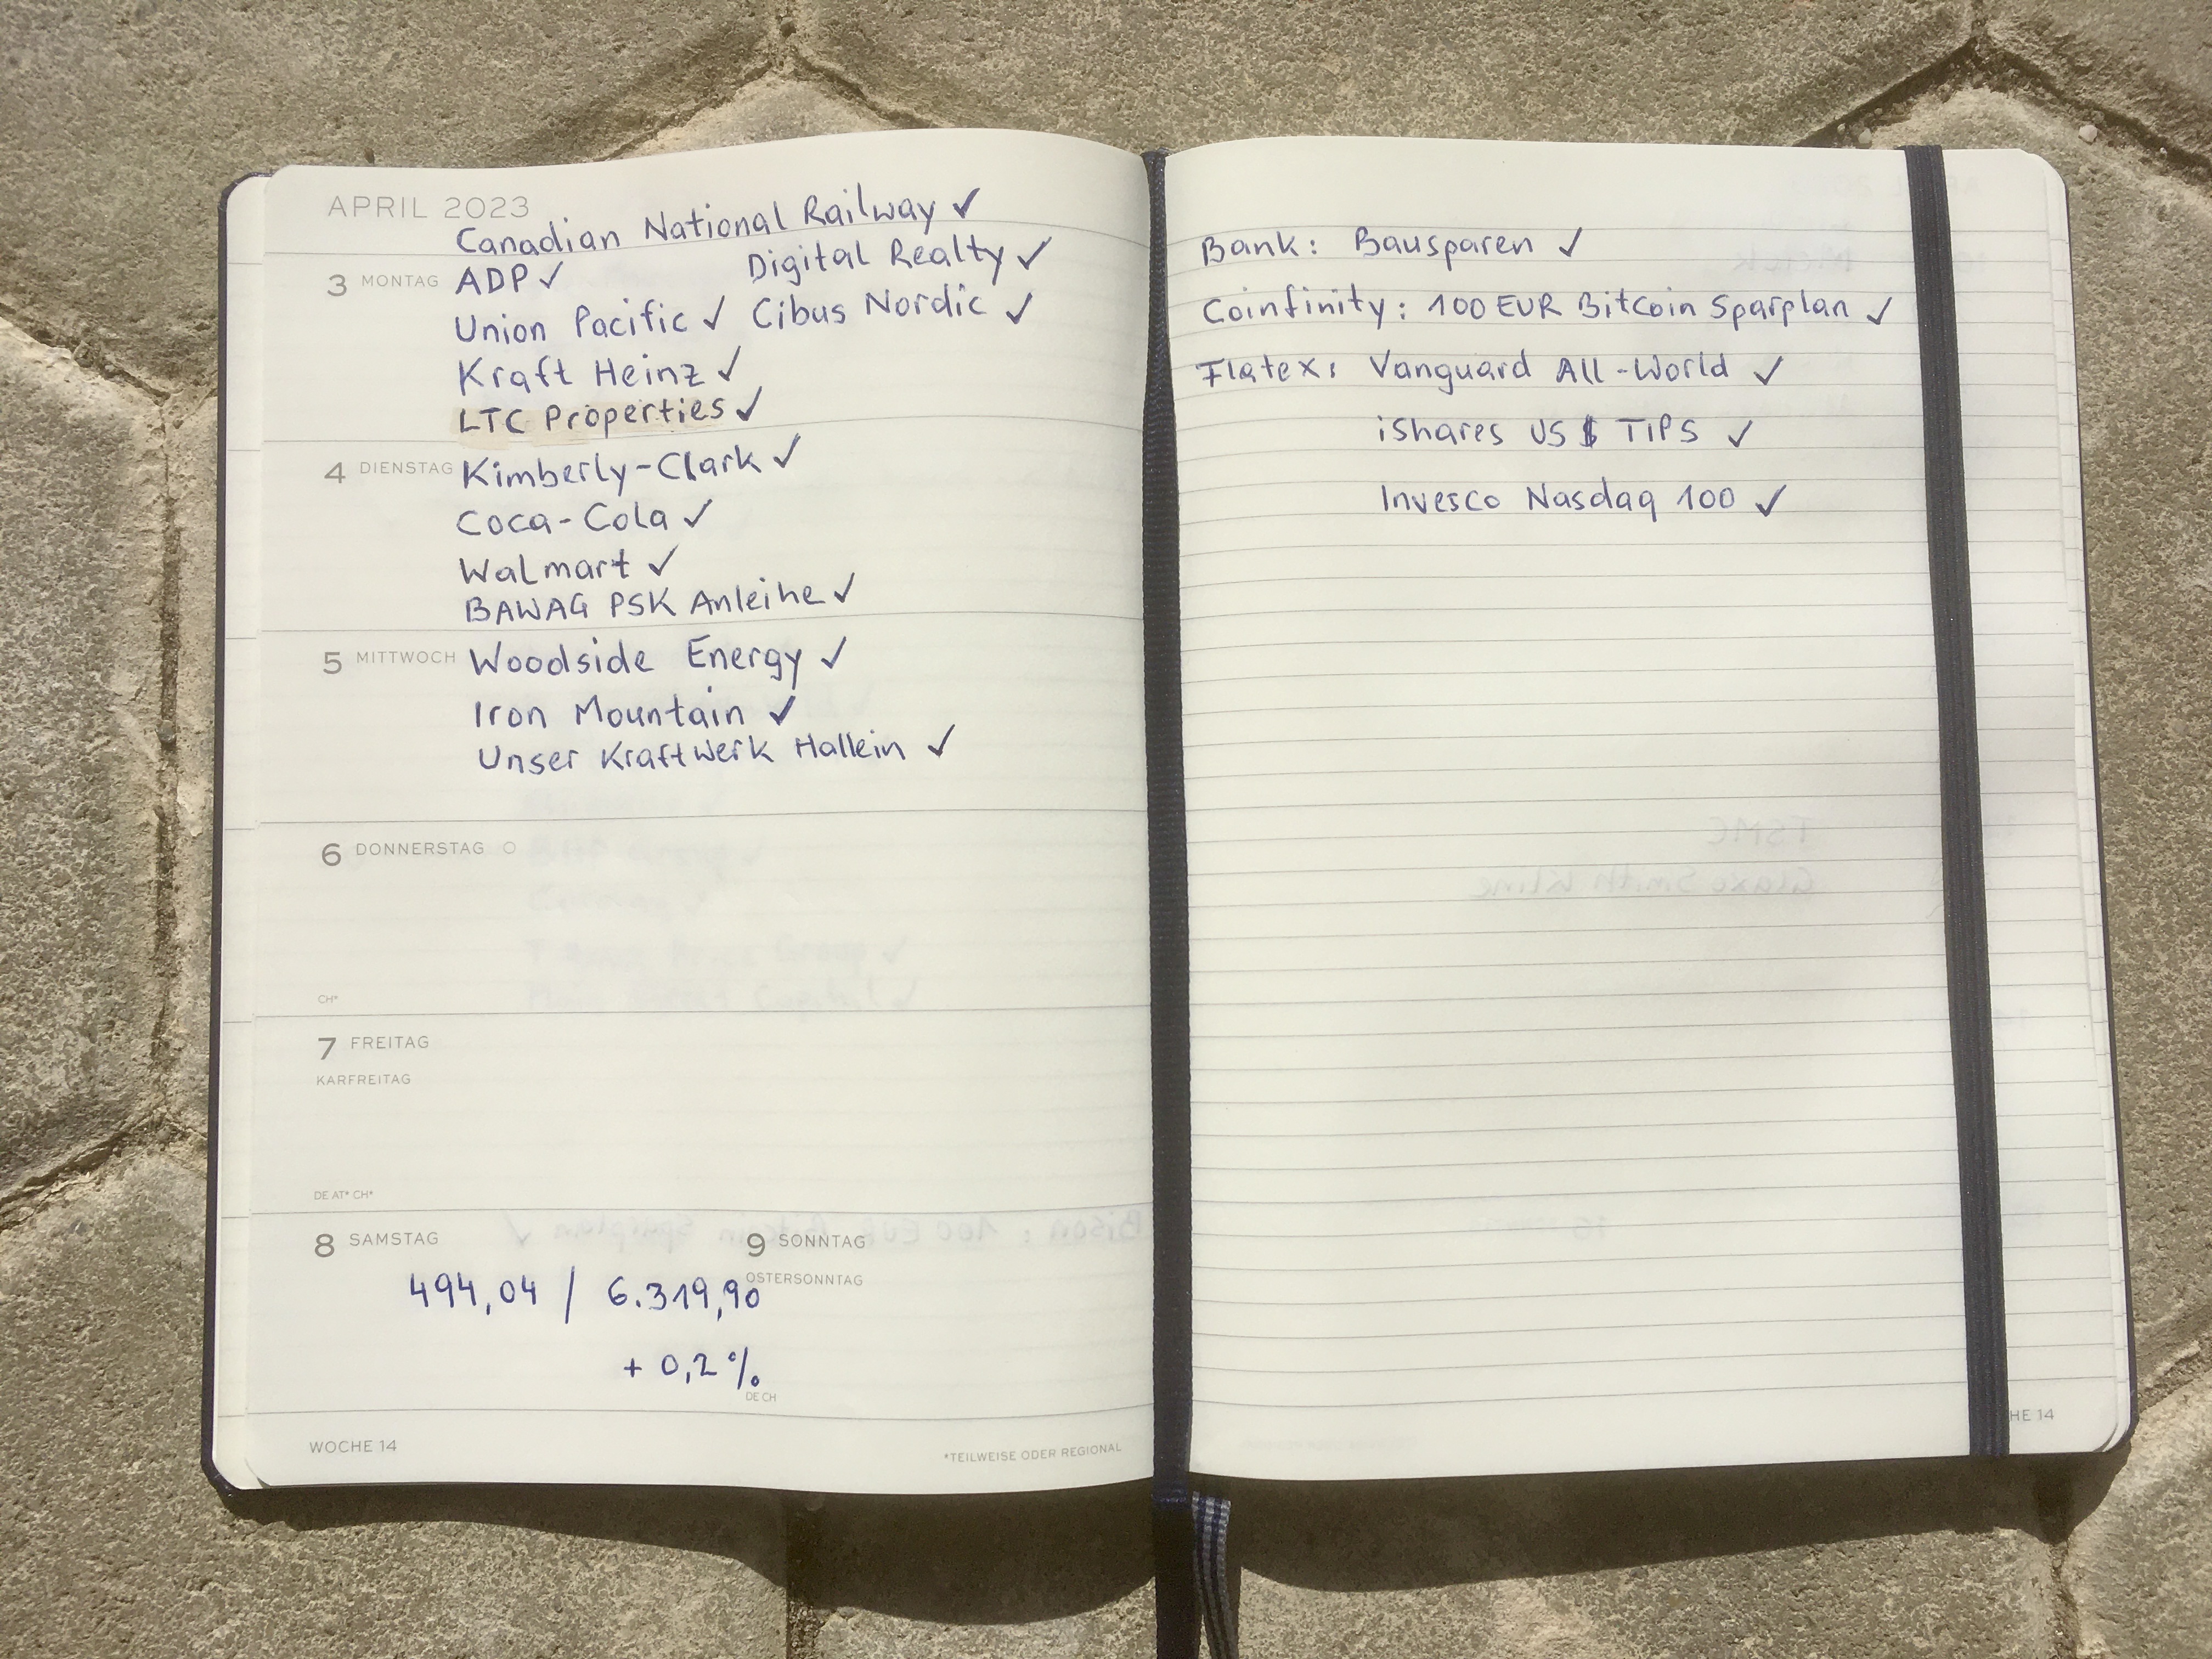 APRIL 2023
Canadian National Railway ✓
3 MONTAG ADP ✓ Digital Realty ✓
Union Pacific ✓ Cibus Nordic ✓
Kraft Heinz ✓
LTC Properties ✓
4 DIENSTAG Kimberly-Clark ✓
Coca-Cola ✓
Walmart ✓
BAWAG PSK Anleihe ✓
5 MITTWOCH Woodside Energy ✓
Iron Mountain ✓
Unser Kraftwerk Hallein ✓
6 DONNERSTAG
CH*
7 FREITAG
KARFREITAG
DE AT* CH*
8 SAMSTAG 9 SONNTAG
OSTERSONNTAG
494,04 / 6.319,90
+ 0,2 %
DE CH
WOCHE 14 *TEILWEISE ODER REGIONAL
Bank: Bausparen ✓
Coinfinity: 100 EUR Bitcoin Sparplan ✓
Flatex: Vanguard All-World ✓
iShares US $ TIPS ✓
Invesco Nasdaq 100 ✓
TSMC
Glaxo Smith Kline
Bison: 100 EUR Bitcoin Sparplan ✓
HE 14